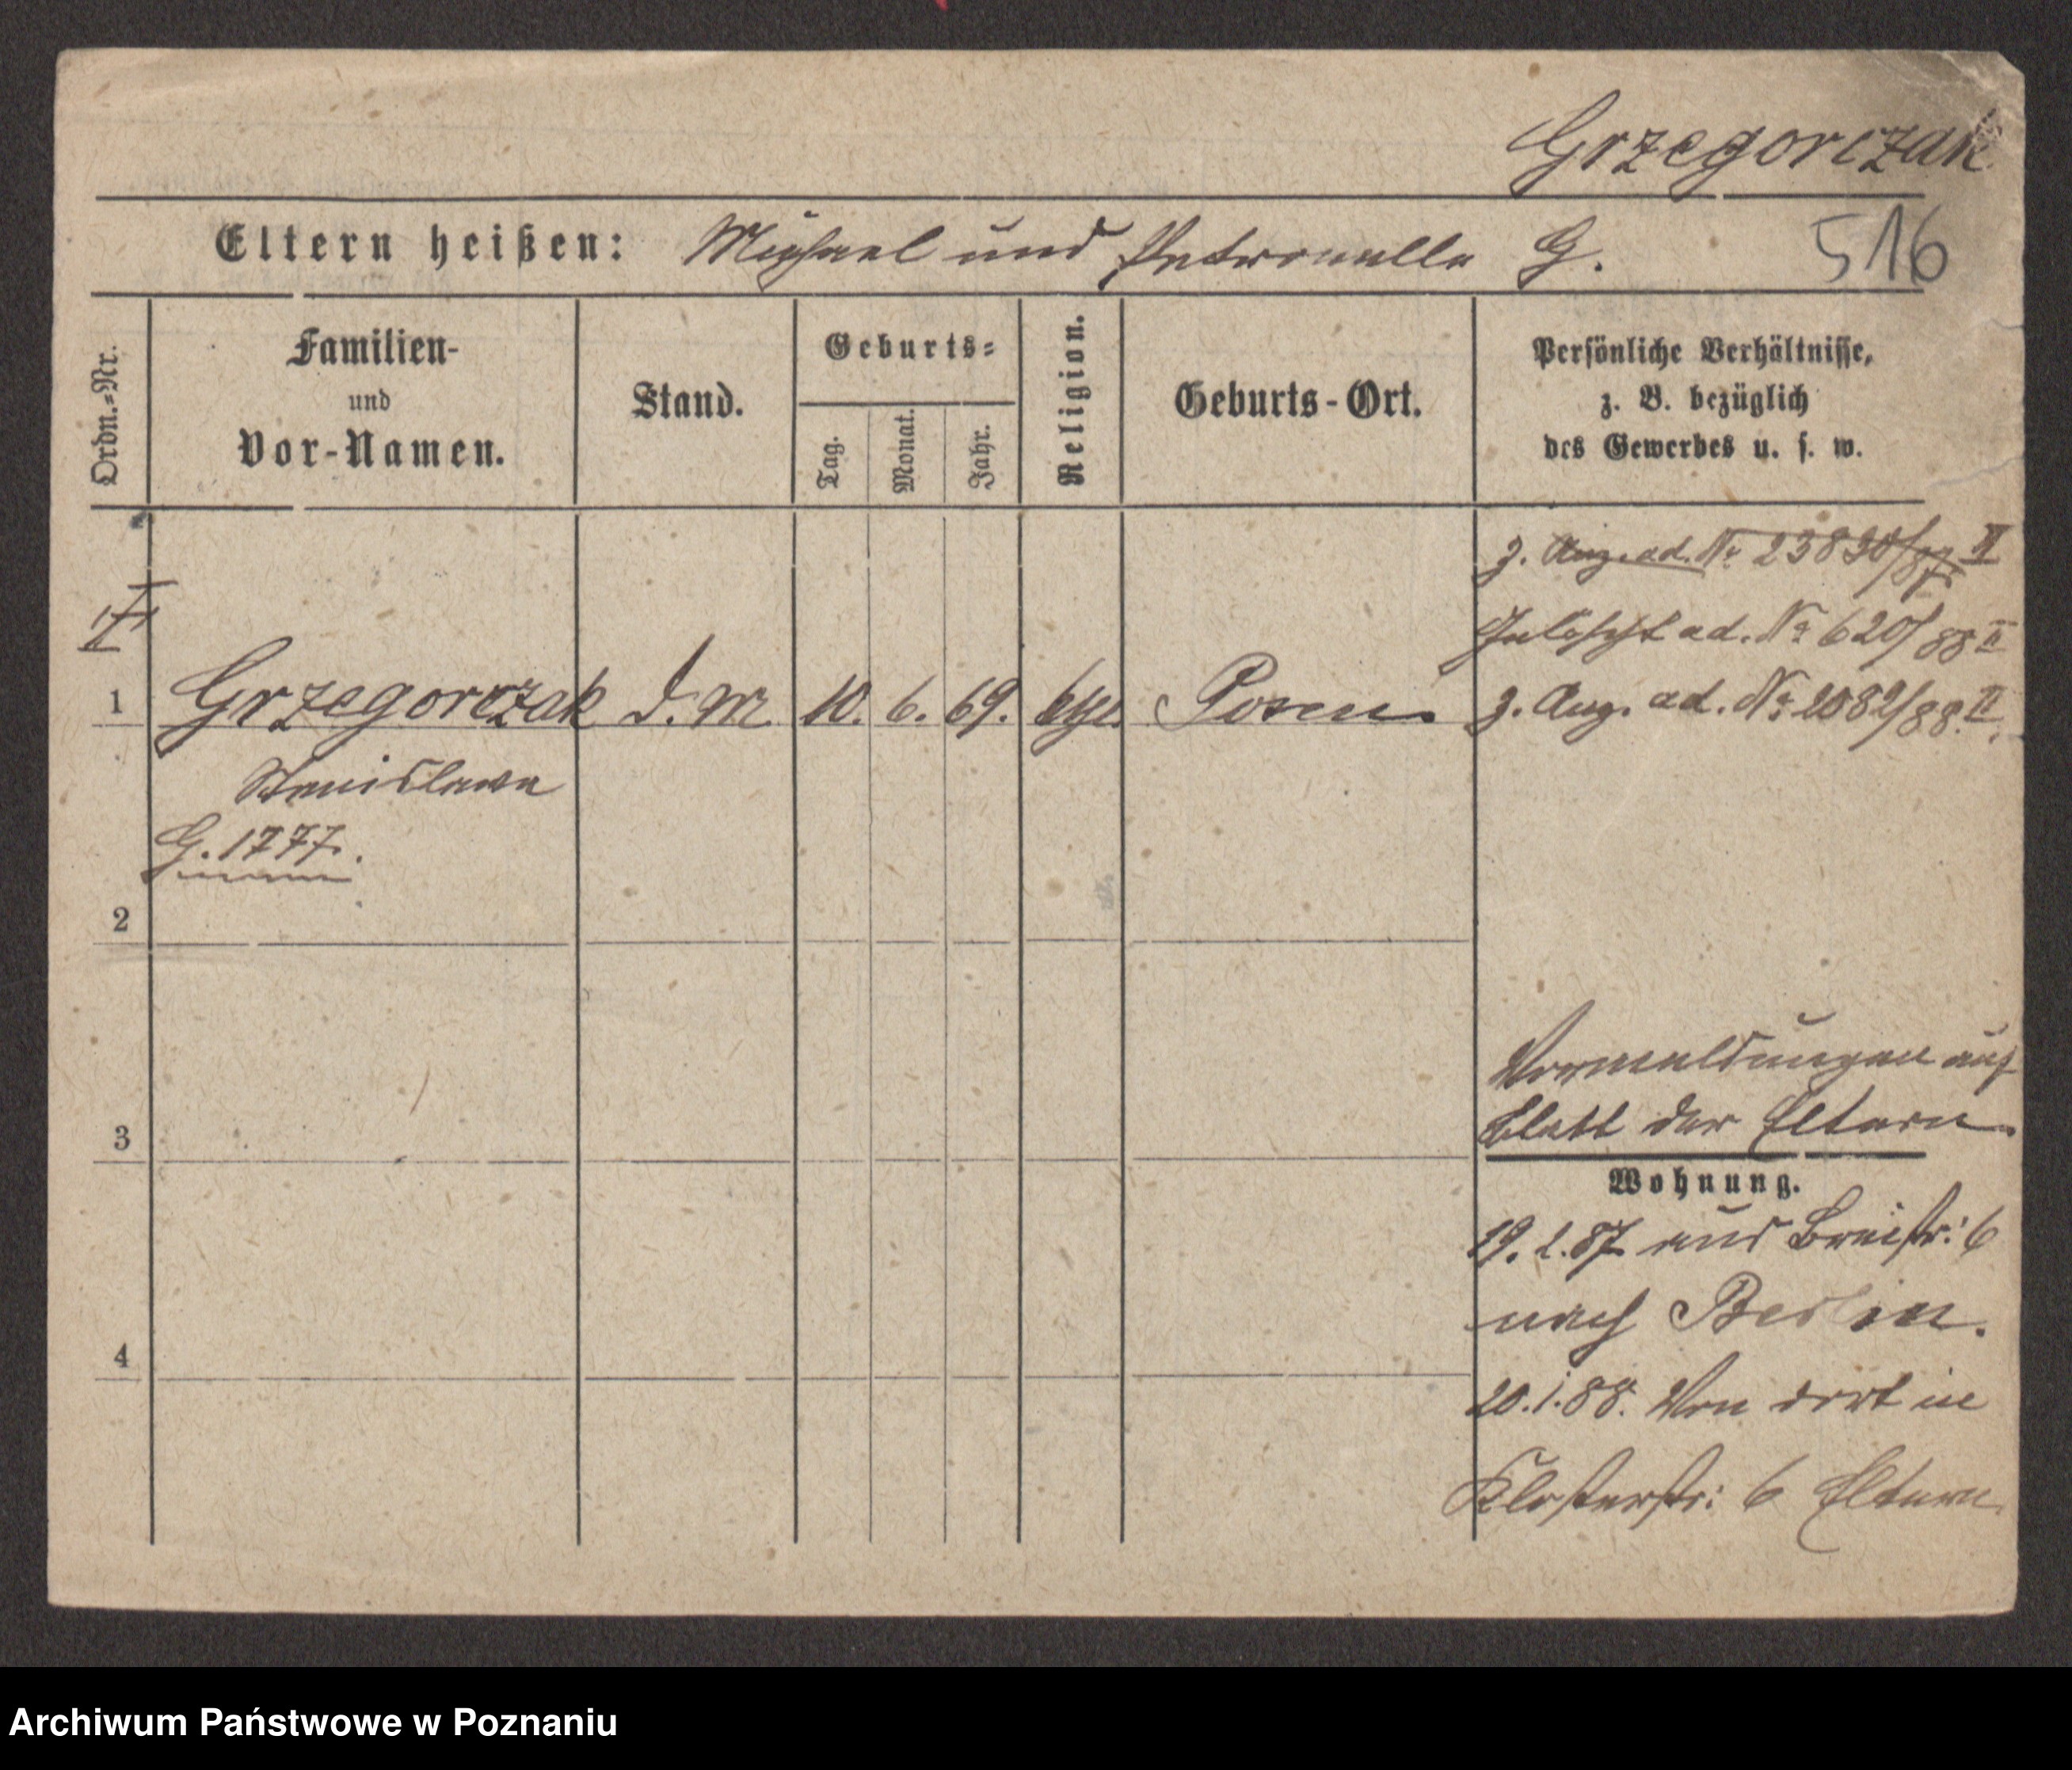 Grzegorczak
Eltern heißen: Michael und Petronella G. 516
Ordn.-Nr.
Familien-
und
Vor-Namen.
Stand.
Geburts-
Tag.
Monat.
Jahr.
Religion.
Geburts-Ort.
Persönliche Verhältnisse,
z. B. bezüglich
des Gewerbes u. s. w.
z. Ang. ad. No 23830/87 II
Gelöscht ad. No 620/88 II
1 Grzegorczak D. M. 10. 6. 69. kth. Posen z. Ang. ad. No 2082/88. II.
Stanislawa
G. 1777.
2
Vormeldungen auf
3 Blatt der Eltern.
Wohnung.
19. 2. 87 aus Breitstr: 6
nach Berlin.
4
20. 1. 88. Von dort in
Klosterstr: 6 Eltern
Archiwum Państwowe w Poznaniu